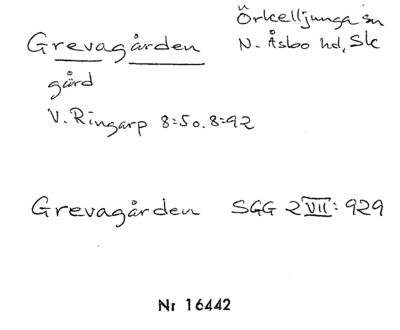 Grevagården
Örkelljunga sn
N. Åsbo hd, Sk
gård
V. Ringarp 8:50. 8:92
Grevagården SGG 2 VII: 929
Nr 16442